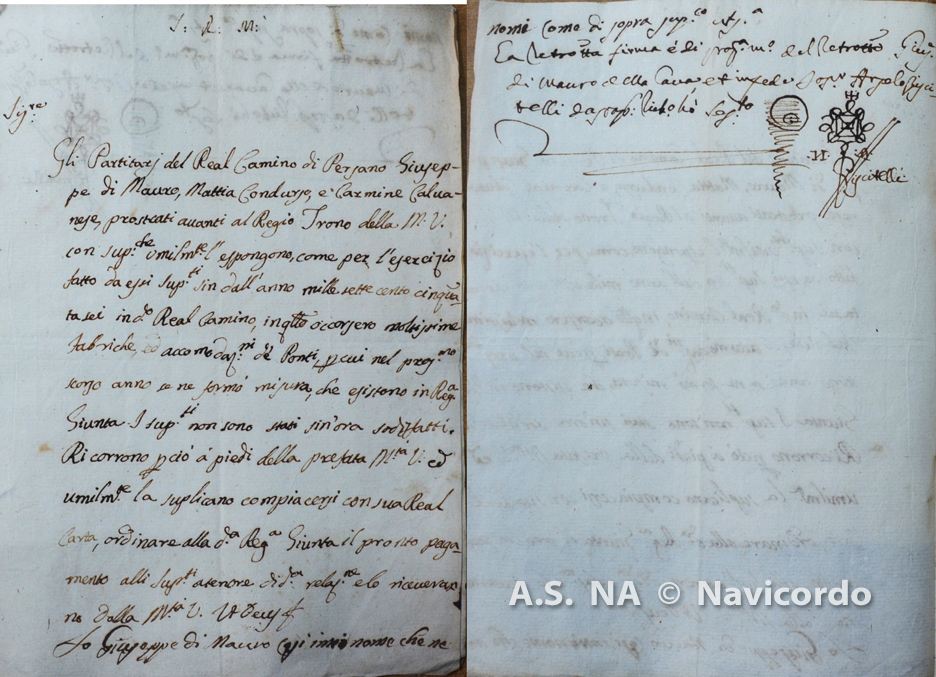 S. R. M.
Sig.re
Gli Partitarj del Real Camino di Persano Giusep-
pe di Mauro, Mattia Condurso, e Carmine Calva-
nese, prostrati avanti al Regio Trono della M. V.
con sup.che umilm.te l'espongono, come per l'esercizio
fatto da essi sup.ti sin dall'anno mille sette cento cinquan-
ta sei in d.o Real Camino, in q.llo occorsero moltissime
fabriche, ed accomodaz.ni de Ponti, p cui nel pros.mo
scorso anno se ne formò misura, che esistono in Reg.a
Giunta I sup.ti non sono stati sin'ora sodisfatti.
Ricorrono p ciò à piedi della prefata M.tà V. ed
umilm.te la suplicano compiacersi con sua Real
Carta, ordinare alla d.a Reg.a Giunta il pronto paga-
mento alli sup.ti a tenore di d.a relaz.ne e lo riceveran-
no dalla M.tà V. Ut Deus
Io Giuseppe di Mauro
nome che ne
nomi come di sopra sup.co Ut s.a
La retrotta firma è di prop.a m.o del retrotto Gius.e
di Mauro della Cava et in fede Not.r
telli da
N. A.
Piscitelli
A.S. NA © Navicordo